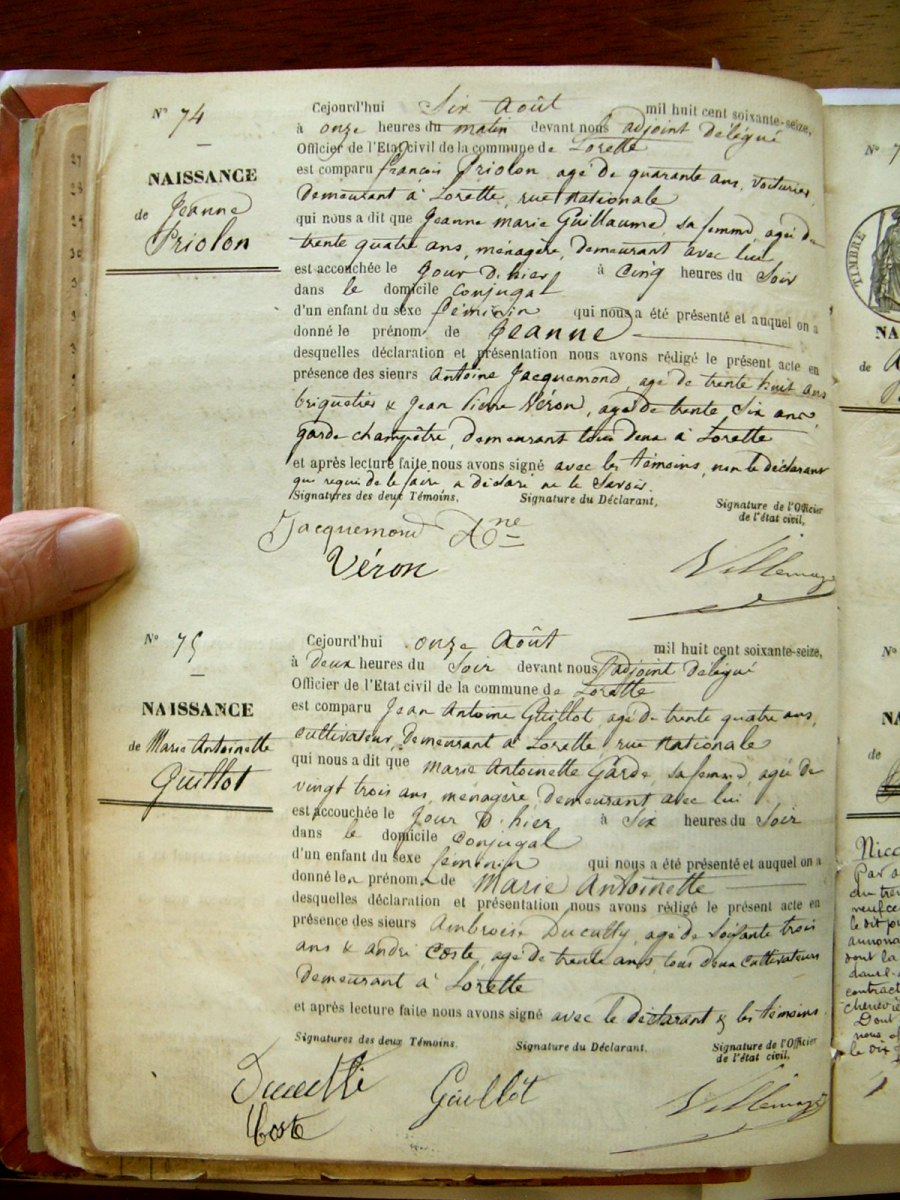 Nº 74
NAISSANCE
de Jeanne
Priolon
Cejourd'hui Six Août mil huit cent soixante-seize,
à onze heures du matin devant nous adjoint délégué
Officier de l'Etat civil de la commune de Lorette
est comparu françois Priolon, agé de quarante ans, voiturier,
demeurant à Lorette, rue Nationale
qui nous a dit que Jeanne marie Guillaume, sa femme, agée de
trente quatre ans, ménagère, demeurant avec lui
est accouchée le Jour D'hier à Cinq heures du Soir
dans le domicile Conjugal
d'un enfant du sexe féminin qui nous a été présenté et auquel on a
donné le prénom de Jeanne
desquelles déclaration et présentation nous avons rédigé le présent acte en
présence des sieurs Antoine Jacquemond, agé de trente huit ans
briquetier & Jean Pierre Véron, agé de trente Six ans,
garde champêtre, demeurant tous deux à Lorette
et après lecture faite nous avons signé avec les témoins, non le déclarant
qui requis de le faire, a déclaré ne le Savoir.
Signatures des deux Témoins, Signature du Déclarant, Signature de l'Officier
de l'état civil,
Jacquemond Ane
Véron
Nº 75
NAISSANCE
de Marie Antoinette
Guillot
Cejourd'hui onze Août mil huit cent soixante-seize,
à deux heures du Soir devant nous adjoint délégué
Officier de l'Etat civil de la commune de Lorette
est comparu Jean Antoine Guillot, agé de trente quatre ans,
cultivateur, demeurant à Lorette rue Nationale
qui nous a dit que Marie Antoinette Garde, sa femme, agée de
vingt trois ans, ménagère, demeurant avec lui
est accouchée le Jour D'hier à Six heures du Soir
dans le domicile Conjugal
d'un enfant du sexe féminin qui nous a été présenté et auquel on a
donné les prénoms de Marie Antoinette
desquelles déclaration et présentation nous avons rédigé le présent acte en
présence des sieurs Ambroise agé de Soixante trois
ans & andré Coste, agé de trente ans, tous deux cultivateurs
demeurant à Lorette
et après lecture faite nous avons signé avec le déclarant & les témoins.
Signatures des deux Témoins. Signature du Déclarant, Signature de l'Officier
de l'état civil,
Guillot
Coste
TIMBRE
Nº 7
NA
de
Nº
NA
de
Par
le dit
dont la
contract
Dont
nous
le dix